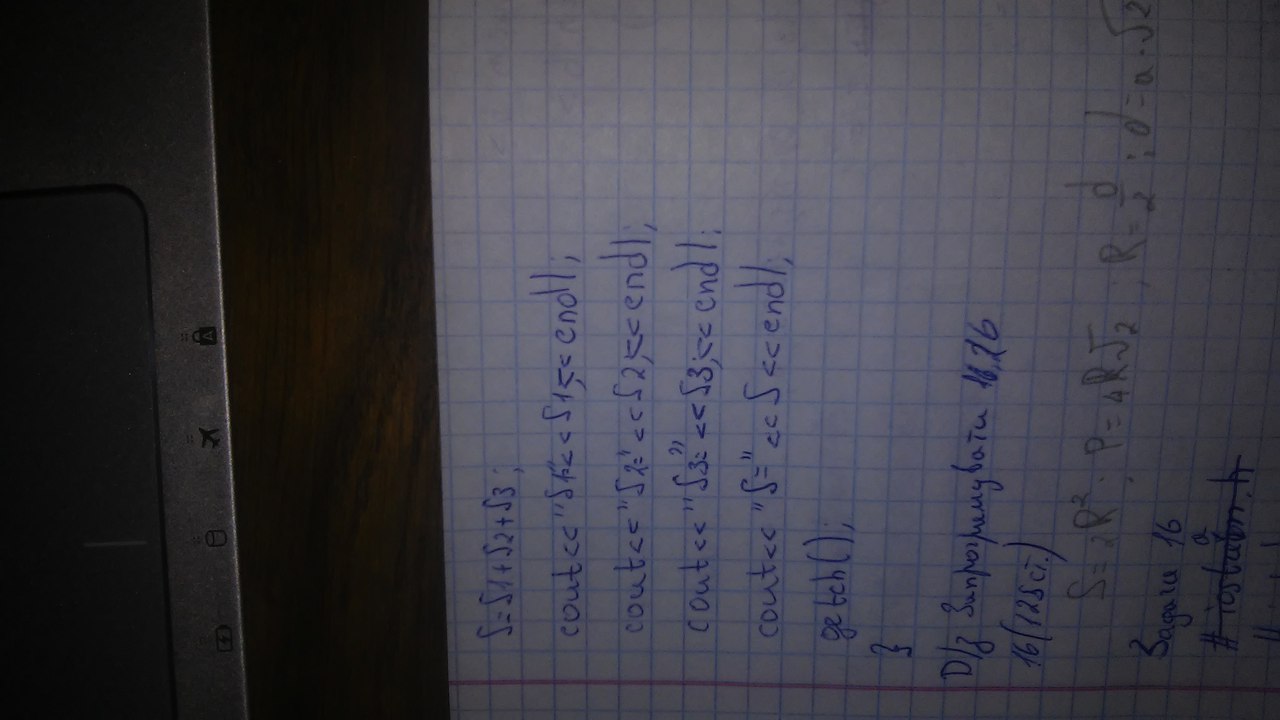 S=S1+S2+S3;
cout<<"S1="<<S1<<endl;
cout<<"S2="<<S2<<endl;
cout<<"S3="<<S3<<endl;
cout<<"S="<<S<<endl;
getch();
}
Д/з Запрограмувати
16(125ст.)
S=2R²; P=4R√2; R=d/2; d=a·√2
Задача 16